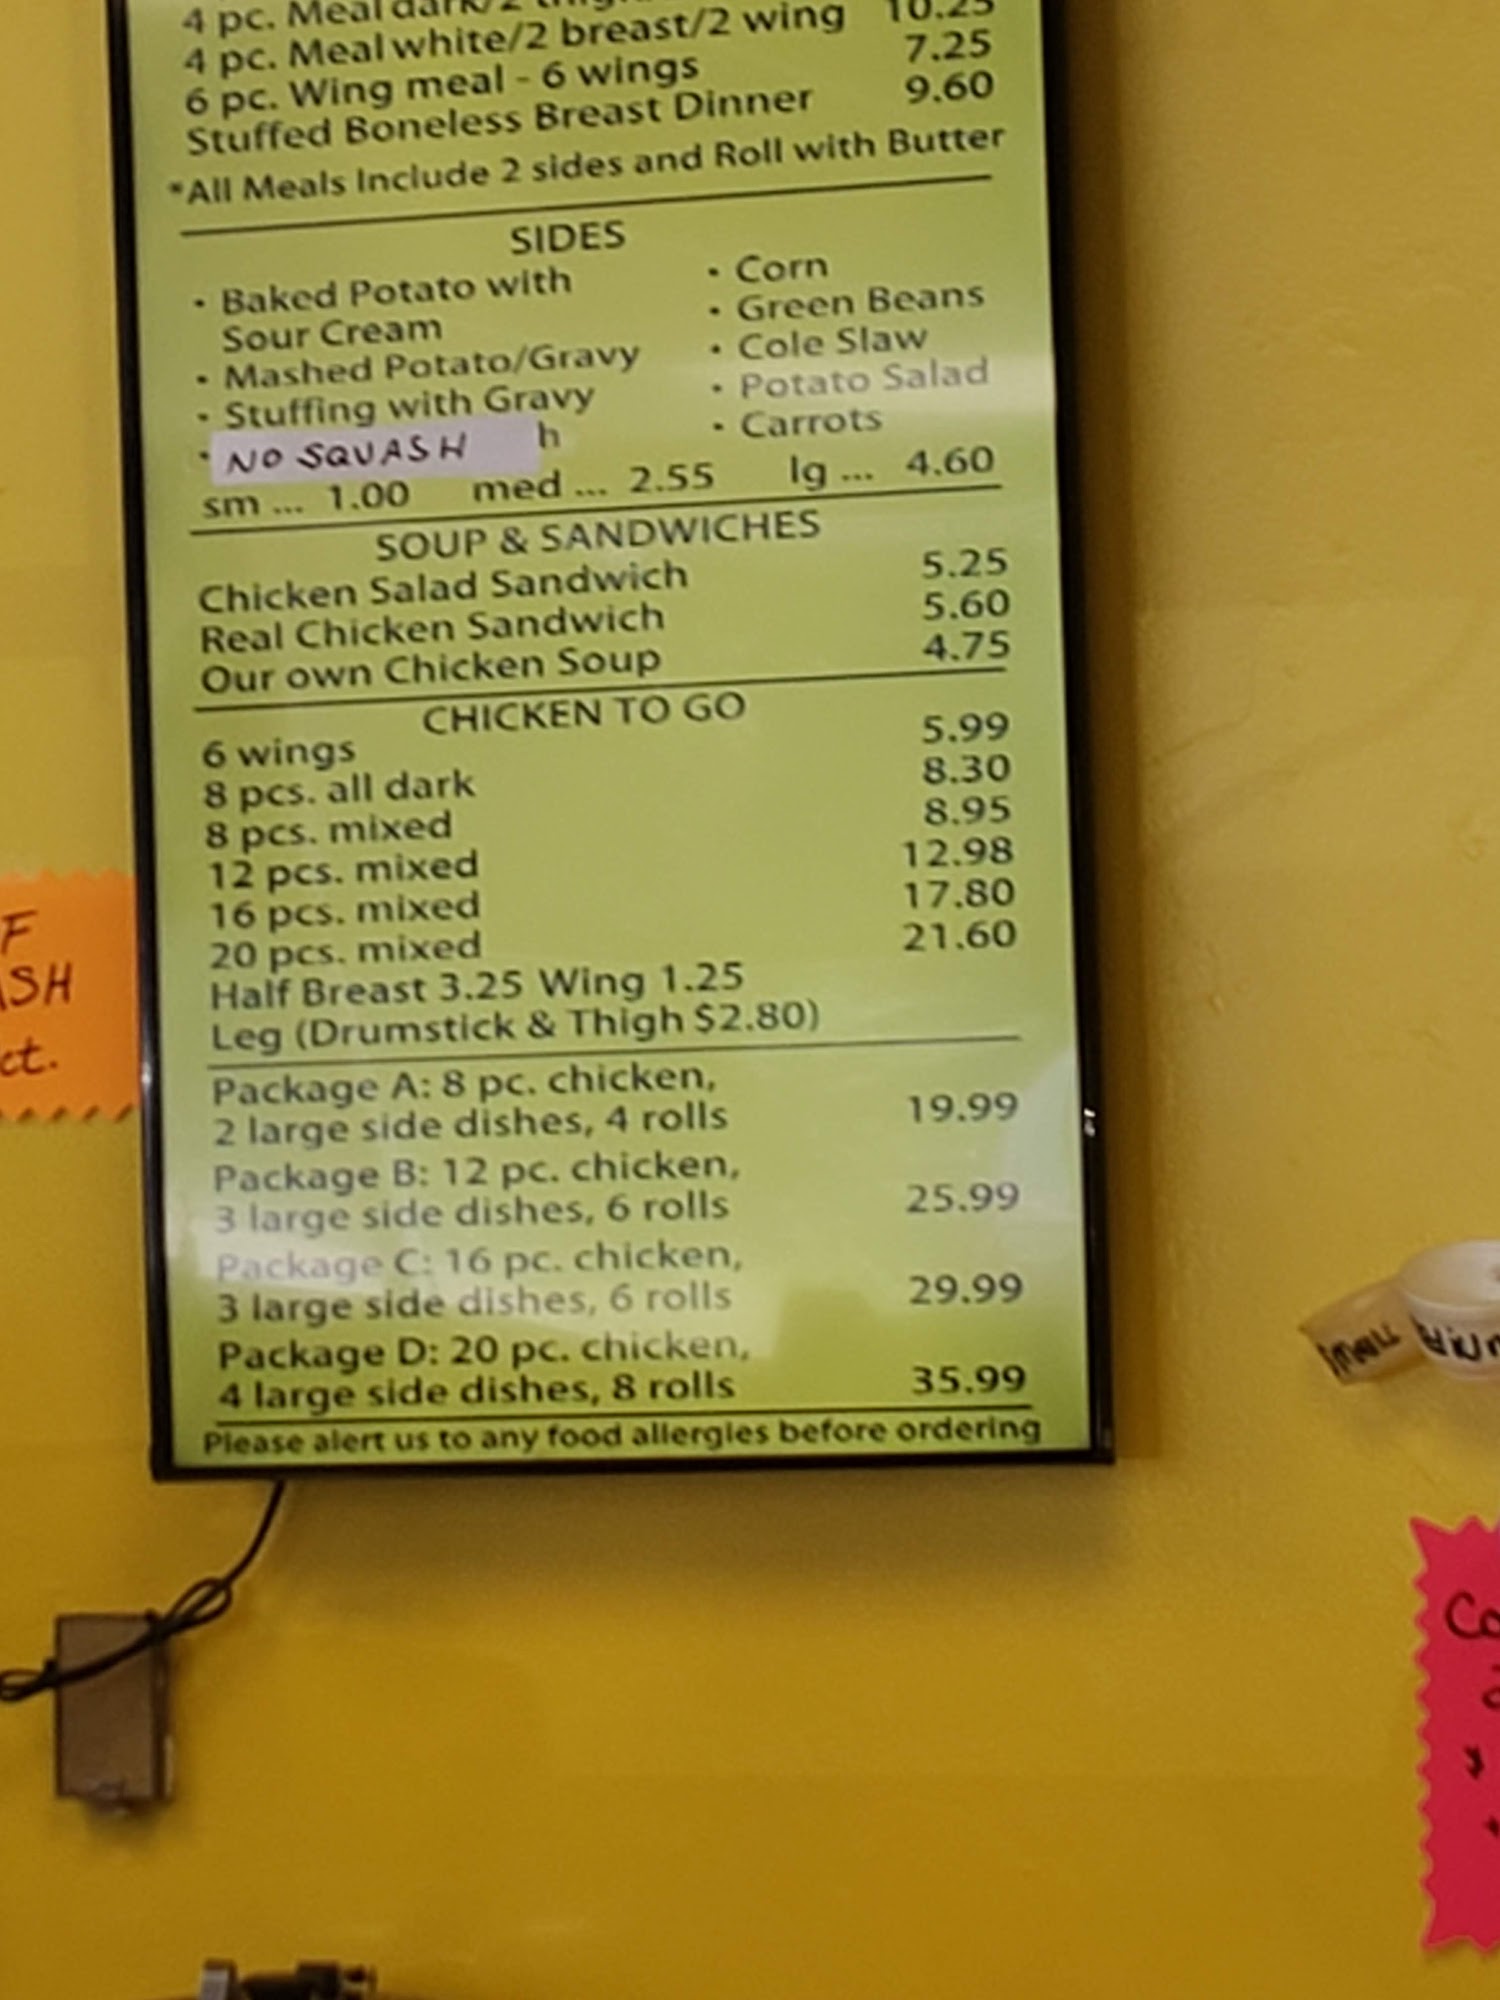 4 pc. Meal dark/2
4 pc. Meal white/2 breast/2 wing 10.25
6 pc. Wing meal - 6 wings 7.25
Stuffed Boneless Breast Dinner 9.60
*All Meals Include 2 sides and Roll with Butter
SIDES
• Baked Potato with
Sour Cream
• Mashed Potato/Gravy
• Stuffing with Gravy
• NO SQUASH h
• Corn
• Green Beans
• Cole Slaw
• Potato Salad
• Carrots
sm ... 1.00 med ... 2.55 lg ... 4.60
SOUP & SANDWICHES
Chicken Salad Sandwich 5.25
Real Chicken Sandwich 5.60
Our own Chicken Soup 4.75
CHICKEN TO GO
6 wings 5.99
8 pcs. all dark 8.30
8 pcs. mixed 8.95
12 pcs. mixed 12.98
16 pcs. mixed 17.80
20 pcs. mixed 21.60
Half Breast 3.25 Wing 1.25
Leg (Drumstick & Thigh $2.80)
Package A: 8 pc. chicken,
2 large side dishes, 4 rolls 19.99
Package B: 12 pc. chicken,
3 large side dishes, 6 rolls 25.99
Package C: 16 pc. chicken,
3 large side dishes, 6 rolls 29.99
Package D: 20 pc. chicken,
4 large side dishes, 8 rolls 35.99
Please alert us to any food allergies before ordering
F
ASH
ct.
small
Co